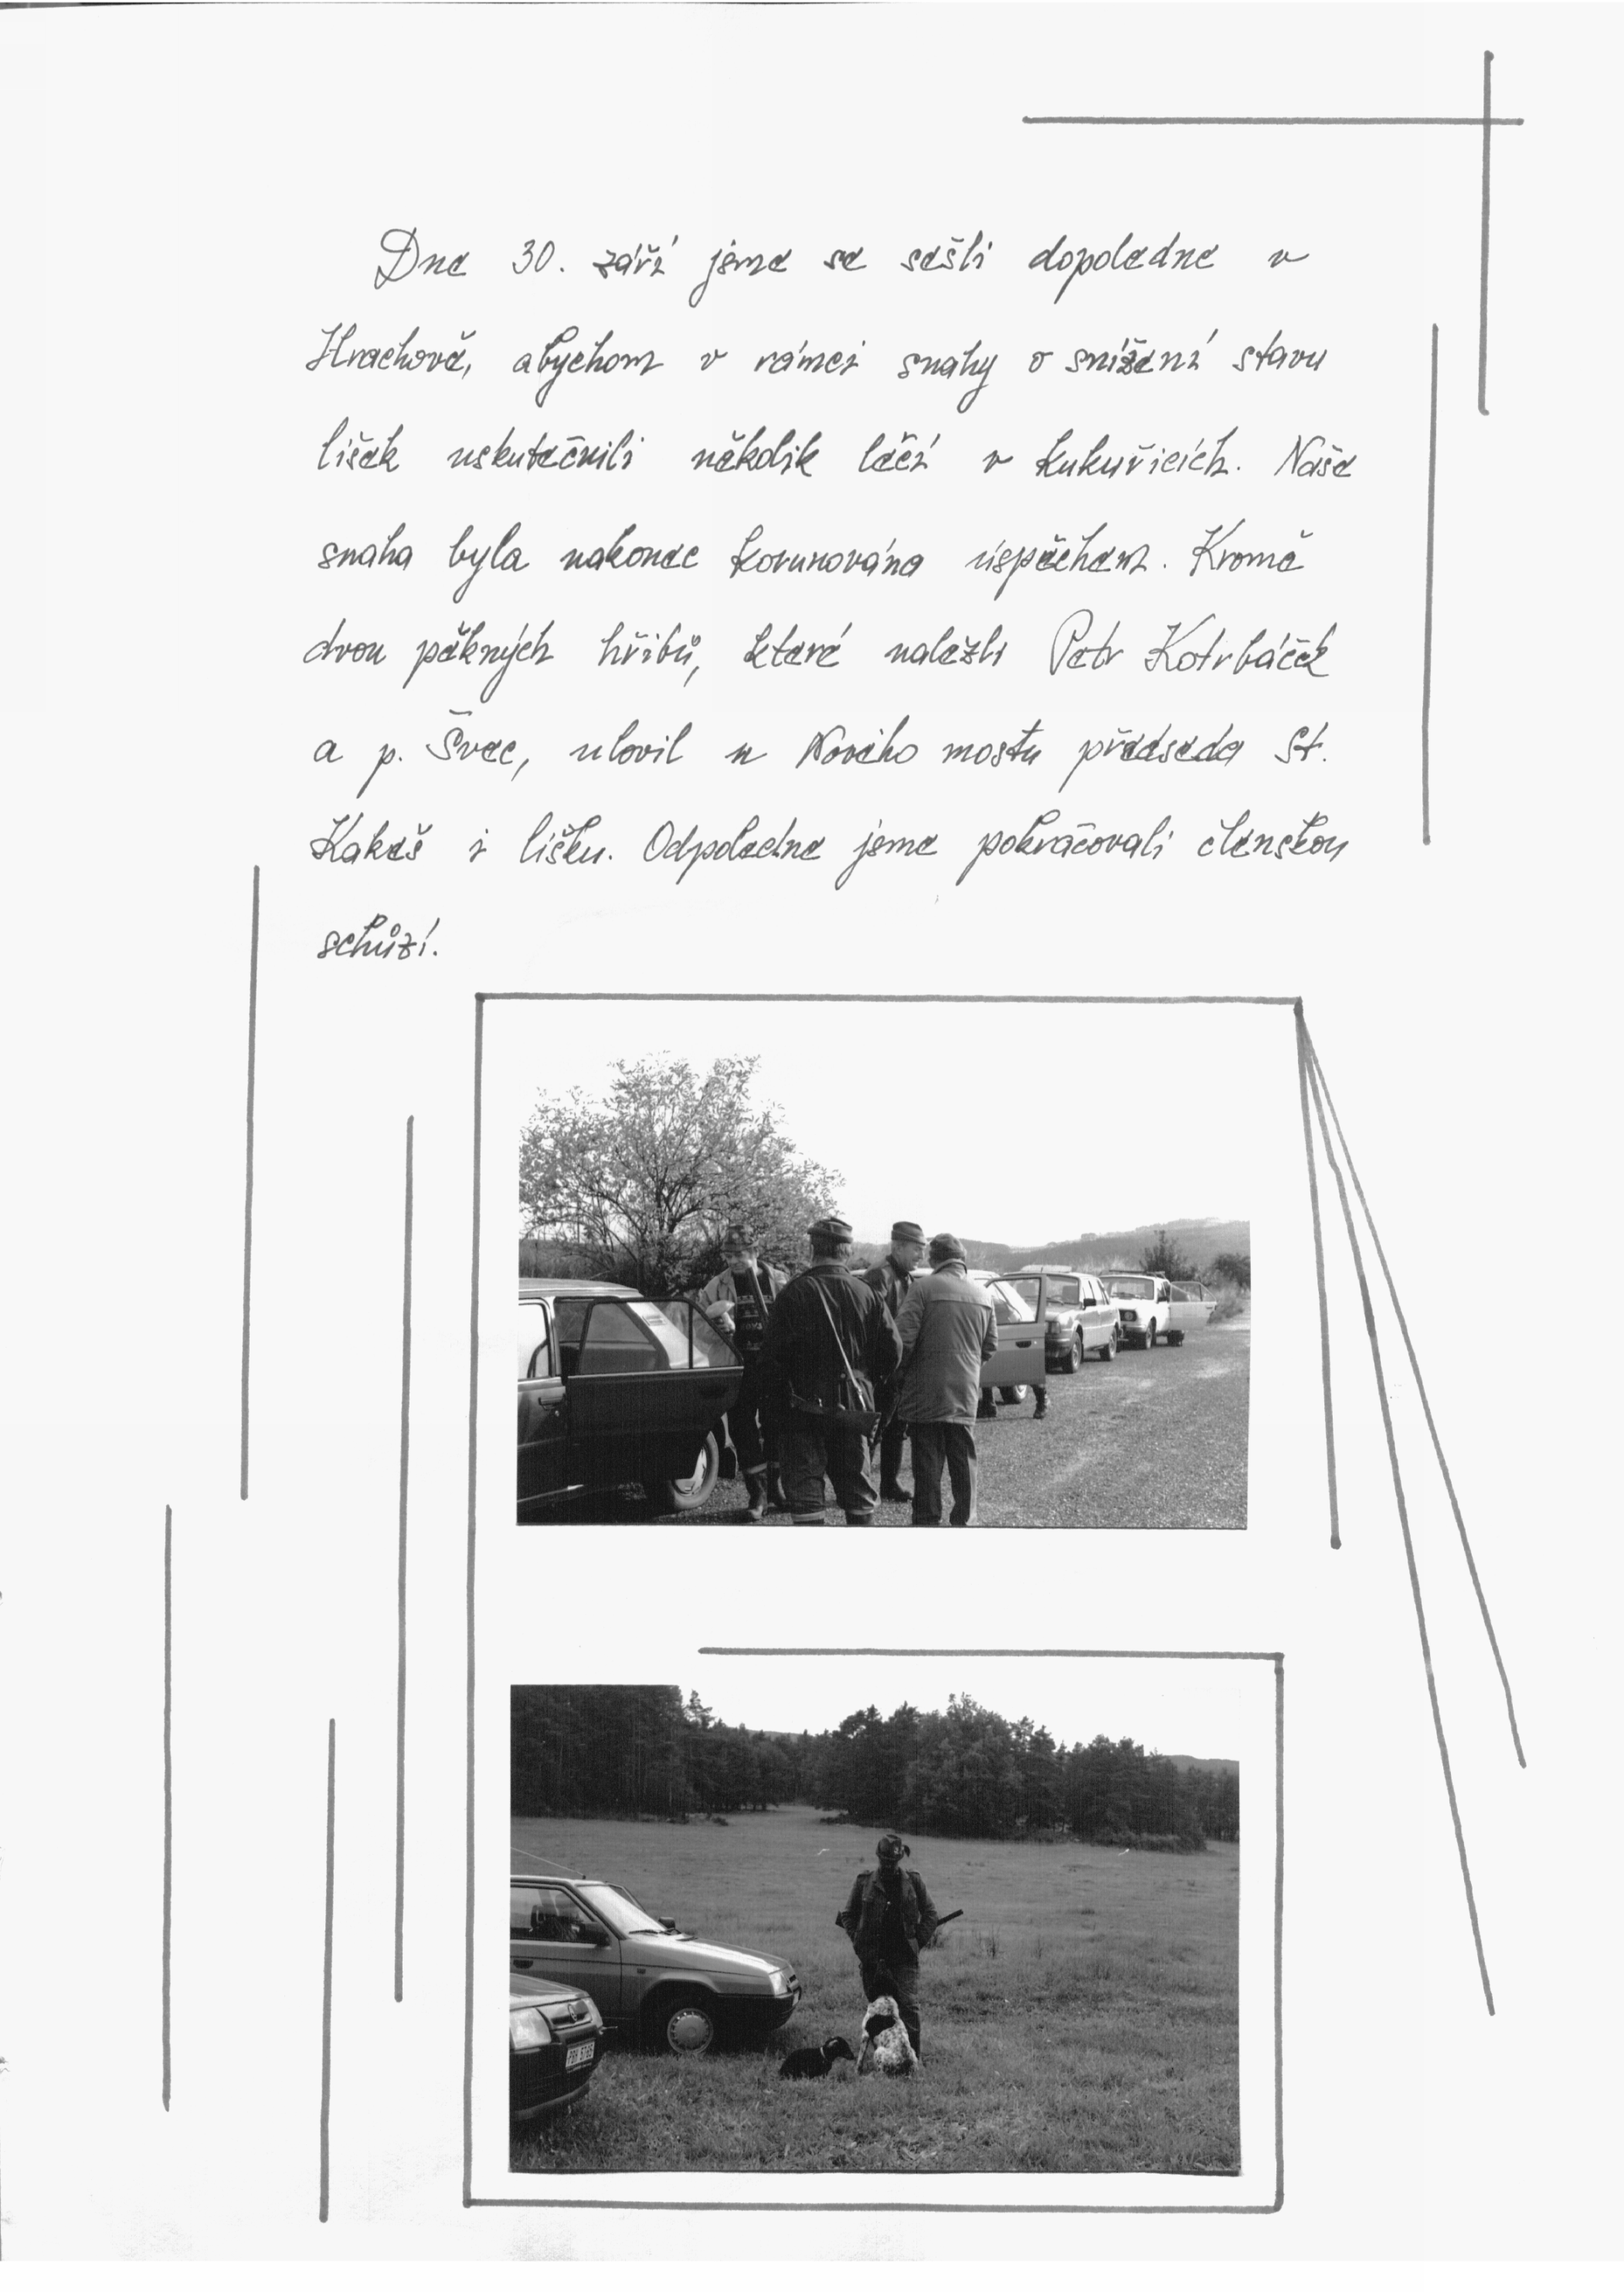 Dne 30. září jsme se sešli dopoledne v
Hrachově, abychom v rámci snahy o snížení stavu
lišek uskutečnili několik lečí v kukuřicích. Naše
snaha byla nakonec korunována úspěchem. Kromě
dvou pěkných hřibů, které nalezli Petr Kotrbáček
a p. Švec, ulovil u Nového mostu předseda St.
Kakeš i lišku. Odpoledne jsme pokračovali členskou
schůzí.